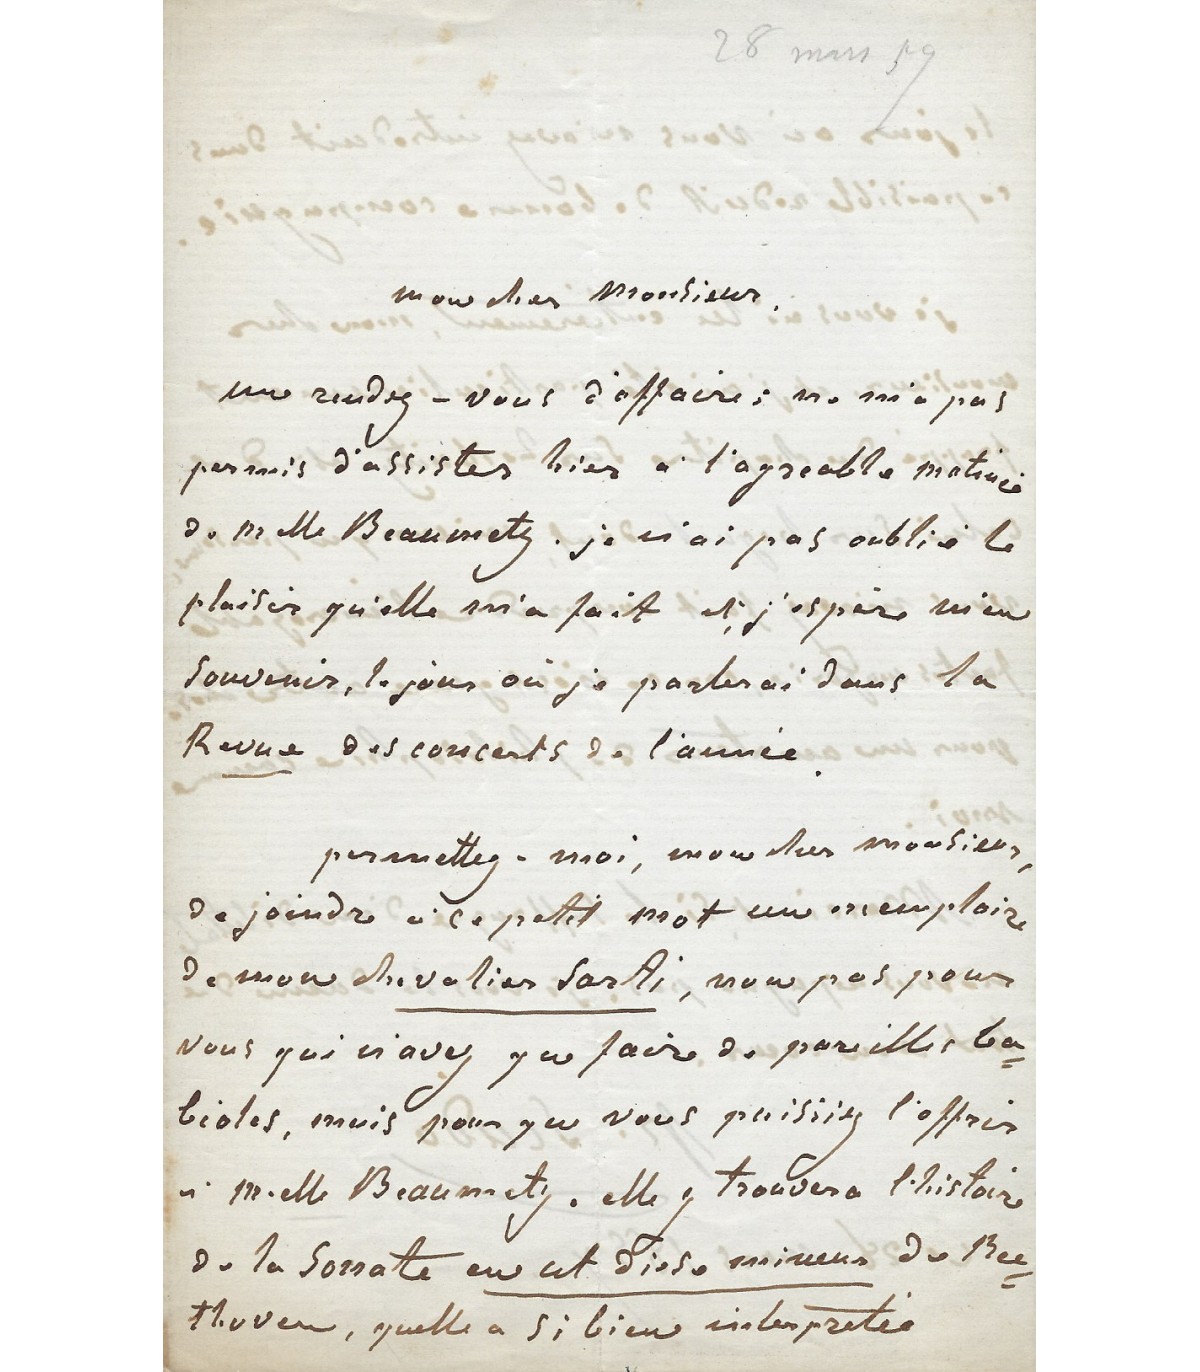 28 mars 59
mon cher monsieur,
un rendez-vous d'affaires ne m'a pas
permis d'assister hier à l'agreable matinée
de melle Beaumetz. je n'ai pas oublié le
plaisir qu'elle m'a fait et j'espère m'en
souvenir, le jour où je parlerai dans la
Revue des concerts de l'année.
permettez-moi, mon cher monsieur,
de joindre à ce petit mot un exemplaire
de mon chevalier Sarti, non pas pour
vous qui n'avez que faire de pareilles ba=
bioles, mais pour que vous puissiez l'offrir
à melle Beaumetz. elle y trouvera l'histoire
de la Sonate en ut dieze mineur de Bee=
thoven, quelle a si bien interpretée